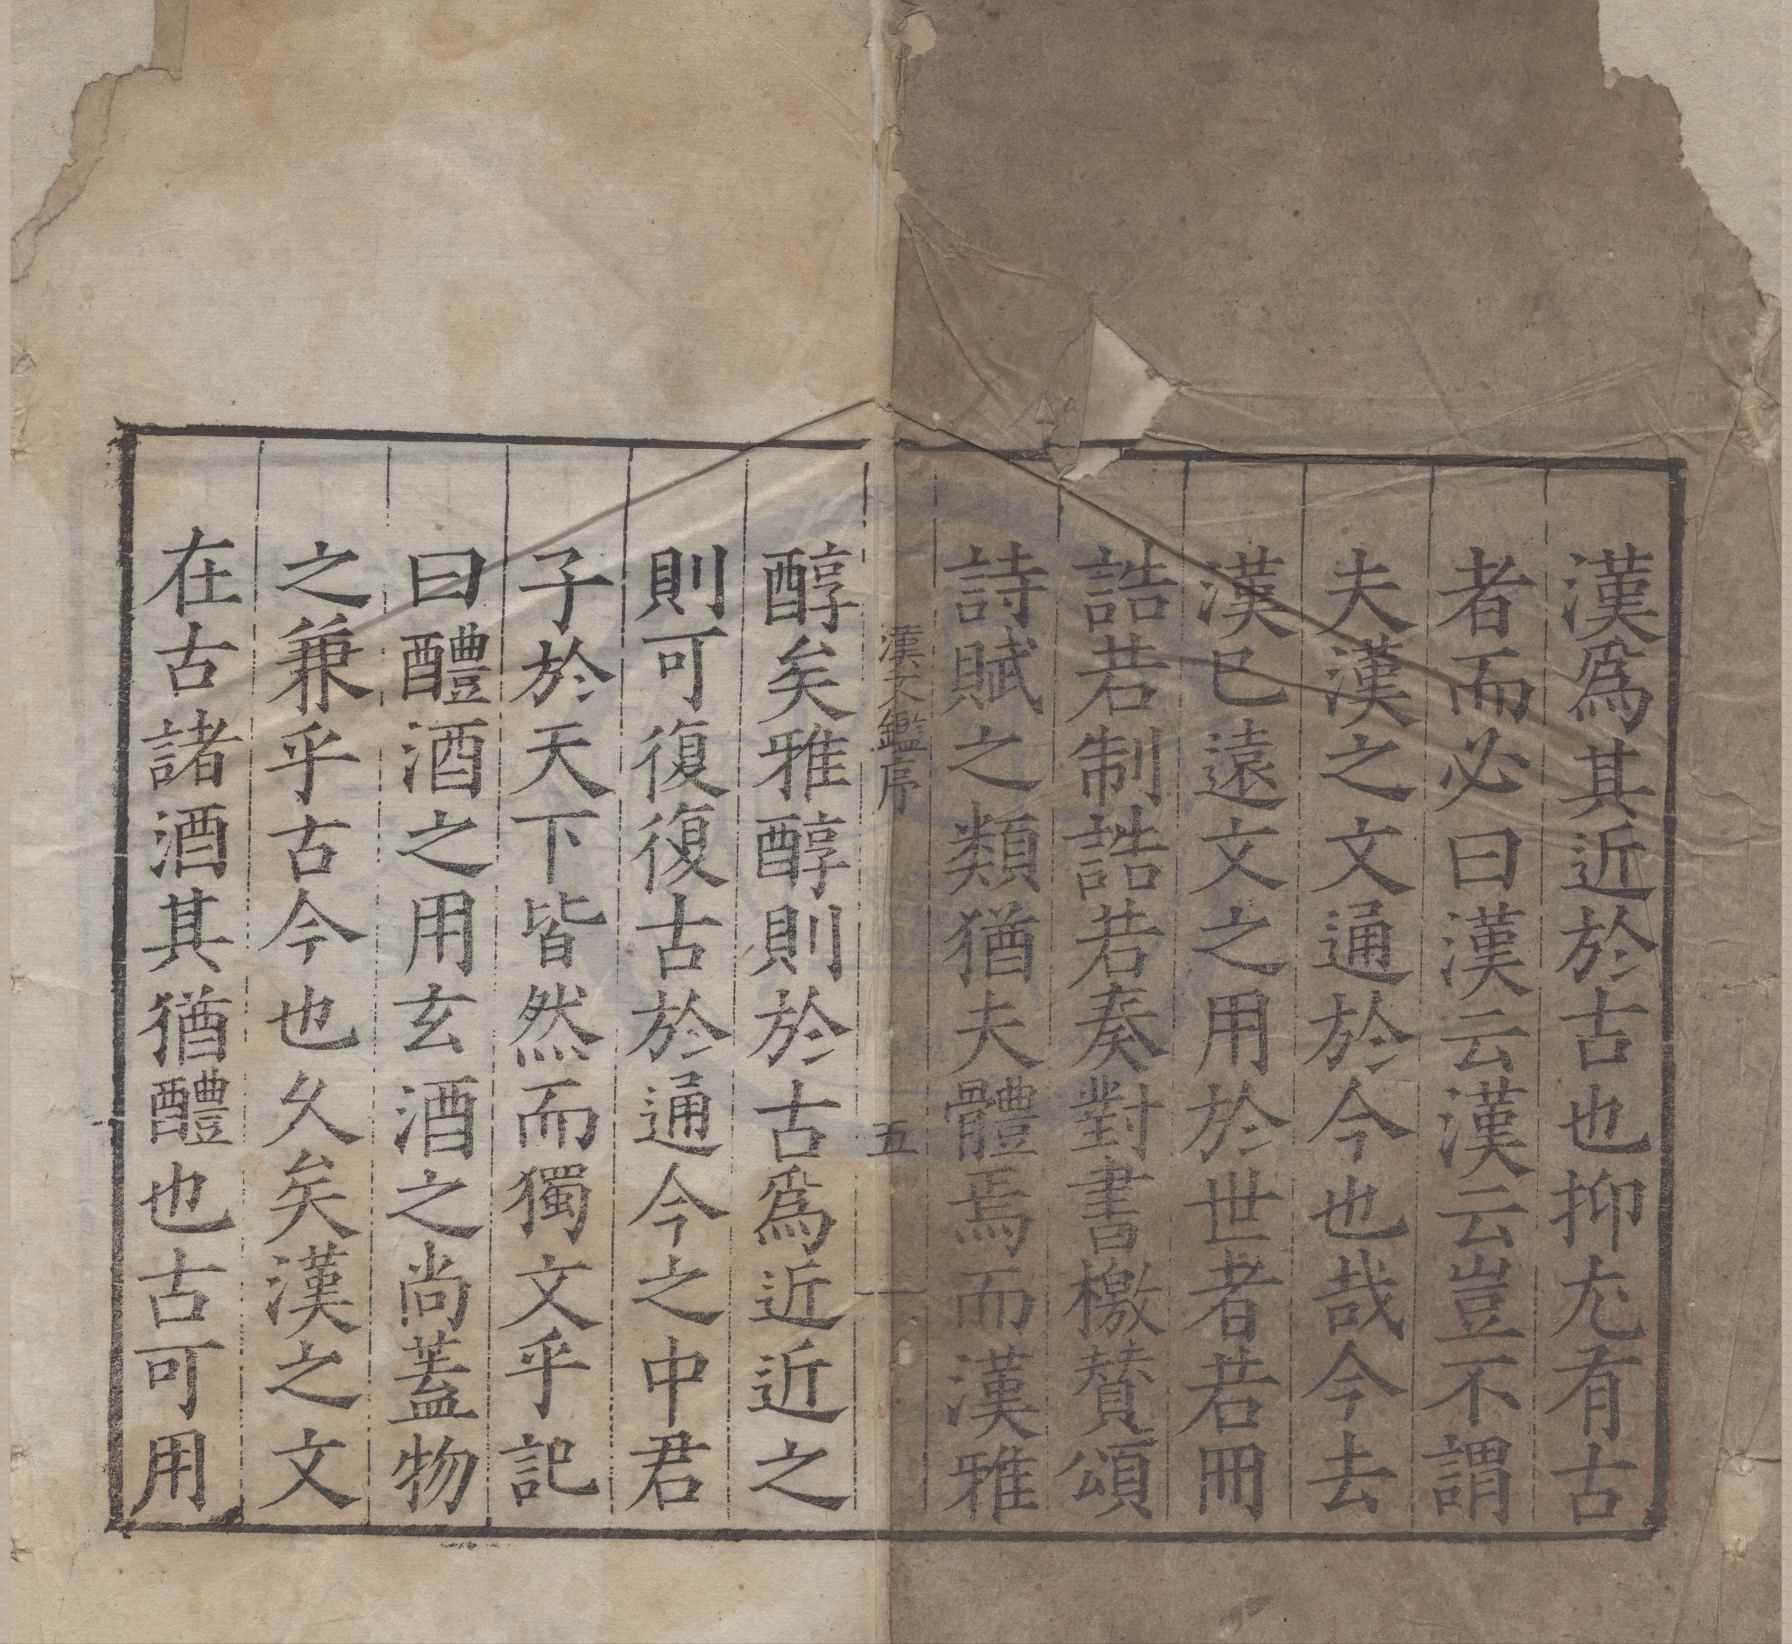 漢爲其近於古也抑尢有古
者而必曰漢云漢云豈不謂
夫漢之文通於今也哉今去
漢已遠文之用於世者若冊
誥若制誥若奏對書檄贊頌
詩賦之類猶夫體焉而漢雅
漢文鑑序
五
醇矣雅醇則於古爲近近之
則可復復古於通今之中君
子於天下皆然而獨文乎記
曰醴酒之用玄酒之尚蓋物
之兼乎古今也久矣漢之文
在古諸酒其猶醴也古可用